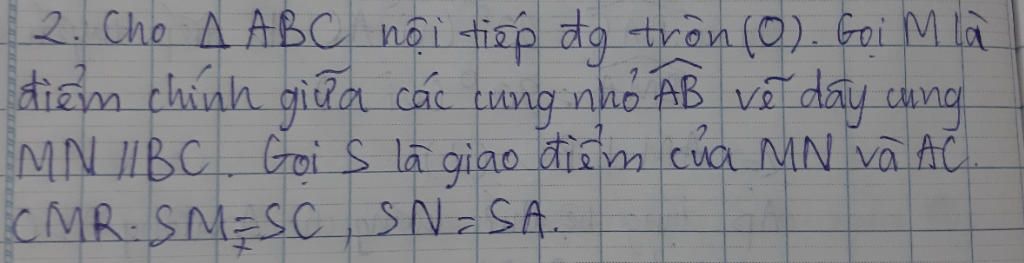 2. Cho Δ ABC nội tiếp đg tròn (O). Gọi M là
điểm chính giữa các cung nhỏ AB vẽ dây cung
MN // BC. Gọi S là giao điểm của MN và AC.
CMR: SM = SC, SN = SA.